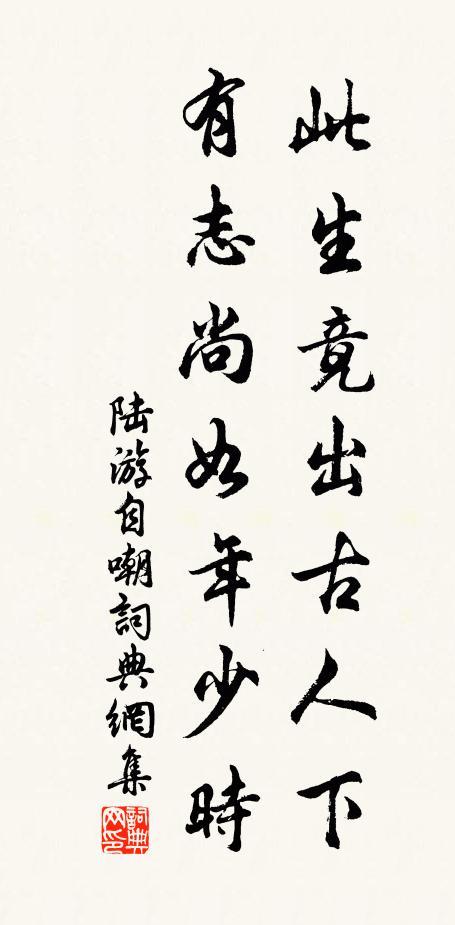 此生竟出古人下
有志尚如年少時
陆游自嘲詞典網集
詞典网印